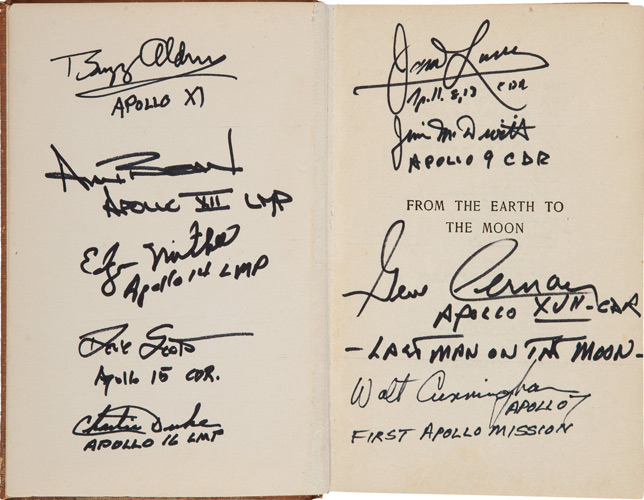 Buzz Aldrin
APOLLO XI
Alan Bean
APOLLO XII LMP
Edgar Mitchell
Apollo 14 LMP
Dave Scott
Apollo 15 CDR.
Charlie Duke
APOLLO 16 LMP
James Lovell
Apollo 8, 13 CDR
Jim McDivitt
APOLLO 9 CDR
FROM THE EARTH TO
THE MOON
Gene Cernan
APOLLO XVII - CDR
- LAST MAN ON THE MOON -
Walt Cunningham
APOLLO 7
FIRST APOLLO MISSION